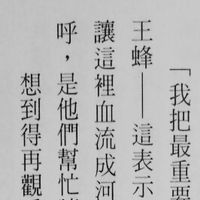 「我把最重要
王蜂——這表示
讓這裡血流成河
呼，是他們幫忙
想到得再觀